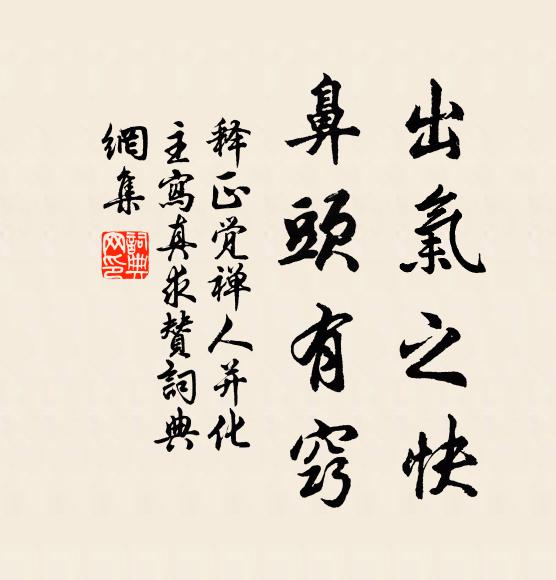 出氣之快
鼻頭有竅
释正觉禅人并化
主寫真求贊詞典
網集
詞典网印